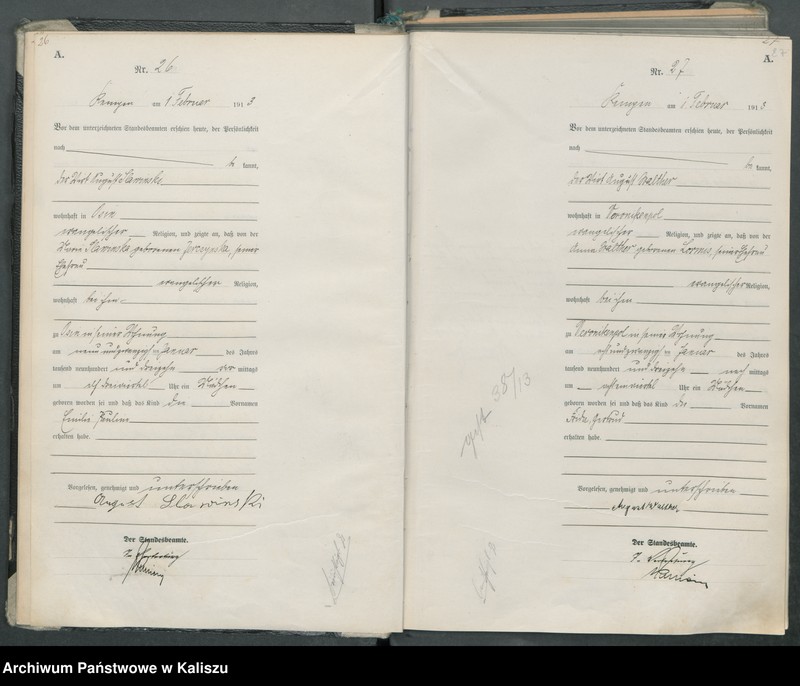 26
A.
Nr. 26
Kempen am 1 Februar 1913
Vor dem unterzeichneten Standesbeamten erschien heute, der Persönlichkeit
nach
be kannt,
der Wirt August
wohnhaft in Osen
evangelischer Religion, und zeigte an, daß von der
geborenen seiner
Ehefrau
evangelischer Religion,
wohnhaft bei ihm
zu Osen in seiner Wohnung
am neunundzwanzigsten Januar des Jahres
tausend neunhundert und dreizehn vor mittags
um elf dreiviertel Uhr ein Mädchen
geboren worden sei und daß das Kind die Vornamen
Emilie Pauline
erhalten habe.
Vorgelesen, genehmigt und unterschrieben
August Slawinski
Der Standesbeamte.
In Vertretung
27
A.
Nr. 27
Kempen am 1 Februar 1913
Vor dem unterzeichneten Standesbeamten erschien heute, der Persönlichkeit
nach
be kannt,
der Wirt August Walther
wohnhaft in
evangelischer Religion, und zeigte an, daß von der
Anna Walther geborenen seiner Ehefrau
evangelischer Religion,
wohnhaft bei ihm
zu in seiner Wohnung
am Januar des Jahres
tausend neunhundert und dreizehn nach mittags
um Uhr ein Mädchen
geboren worden sei und daß das Kind die Vornamen
Frida Gertrud
erhalten habe.
Vorgelesen, genehmigt und unterschrieben
August Walther
Der Standesbeamte.
In Vertretung
38/13
Archiwum Państwowe w Kaliszu